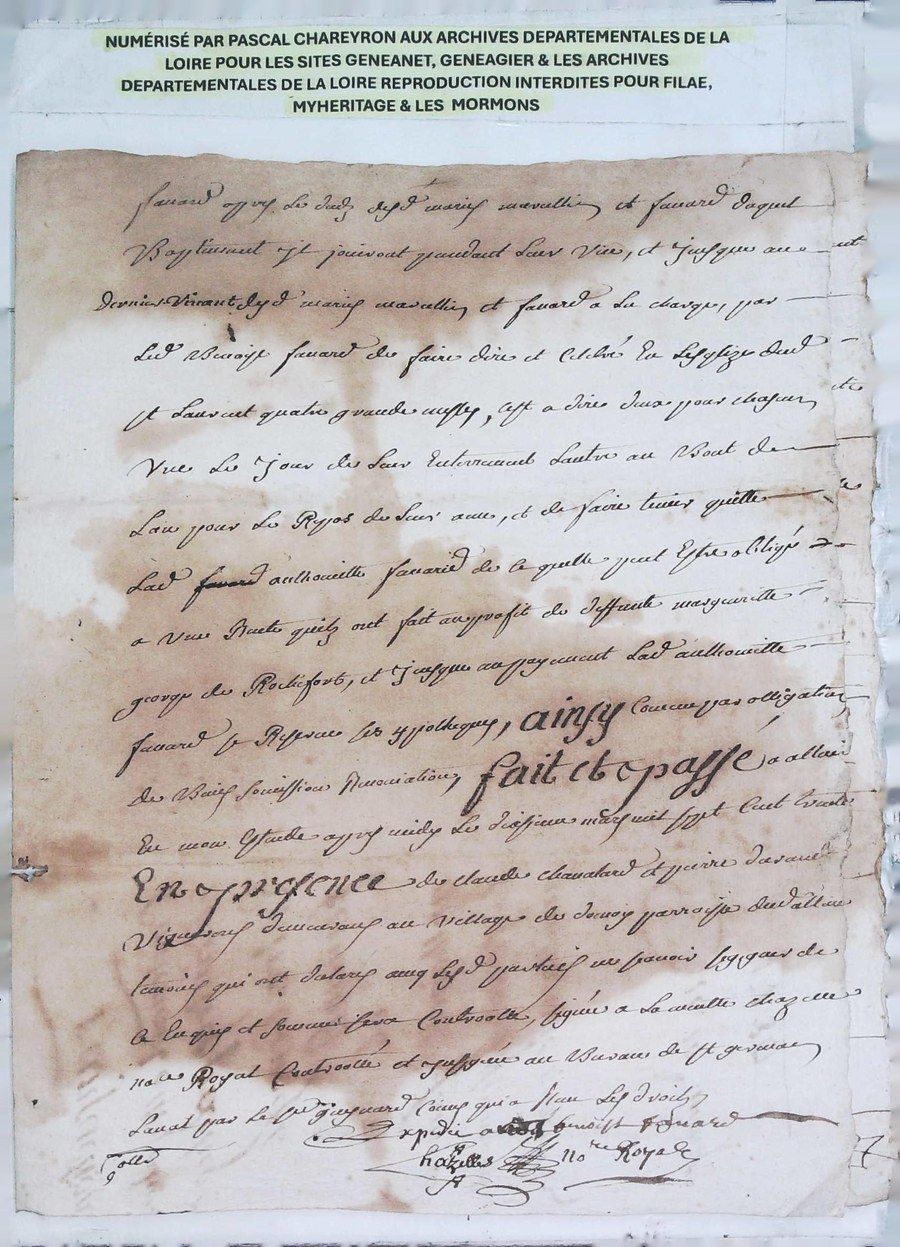 NUMÉRISÉ PAR PASCAL CHAREYRON AUX ARCHIVES DEPARTEMENTALES DE LA
LOIRE POUR LES SITES GENEANET, GENEAGIER & LES ARCHIVES
DEPARTEMENTALES DE LA LOIRE REPRODUCTION INTERDITES POUR FILAE,
MYHERITAGE & LES MORMONS
fauard apprs le et fauard duquel
Bastiment jl jouiront pendant Leur Vie, et Jusque au
dernier Vivant desd mariés et fauard a La charge, par
Led Benoist fauard de faire dire et Celebré En Lesglize dud
st Laurent quatre grande messes, cest a dire deux pour chasqun
Vne Le Jour de Leur Enterrement Lautre au Bout de
Lan pour Le Repos de Leur ame, et de faire tenir quitte
Lad anthoinette fauard de ce quelle peut Estre obligé
a Vne quilz ont fait au profit de deffunte margueritte
george de Rochefort, et Jusque au payement Lad anthoinette
fauard se Reserve ses ypotheques, ainsy Comme par obligation
de Biens soumission Renonciation, fait et passé a allieu
En mon Estude apprs midy Le mars mil sept Cent trente
En presence de claude chavalard et pierre
Vignerons demeurans au Village de parroisse dud allieu
temoins qui ont declarés avec Lesd parties ne sçavoir signer de
ce Enquis et sommés sera Controollé, signée a La minutte chazelle
nore Royal Controollé et Jnsinué au Bureau de st germain
Laval par Le sr Comis qui a Reçu Les droits
Expedié a benoist fauard
Chazelles nore Royal